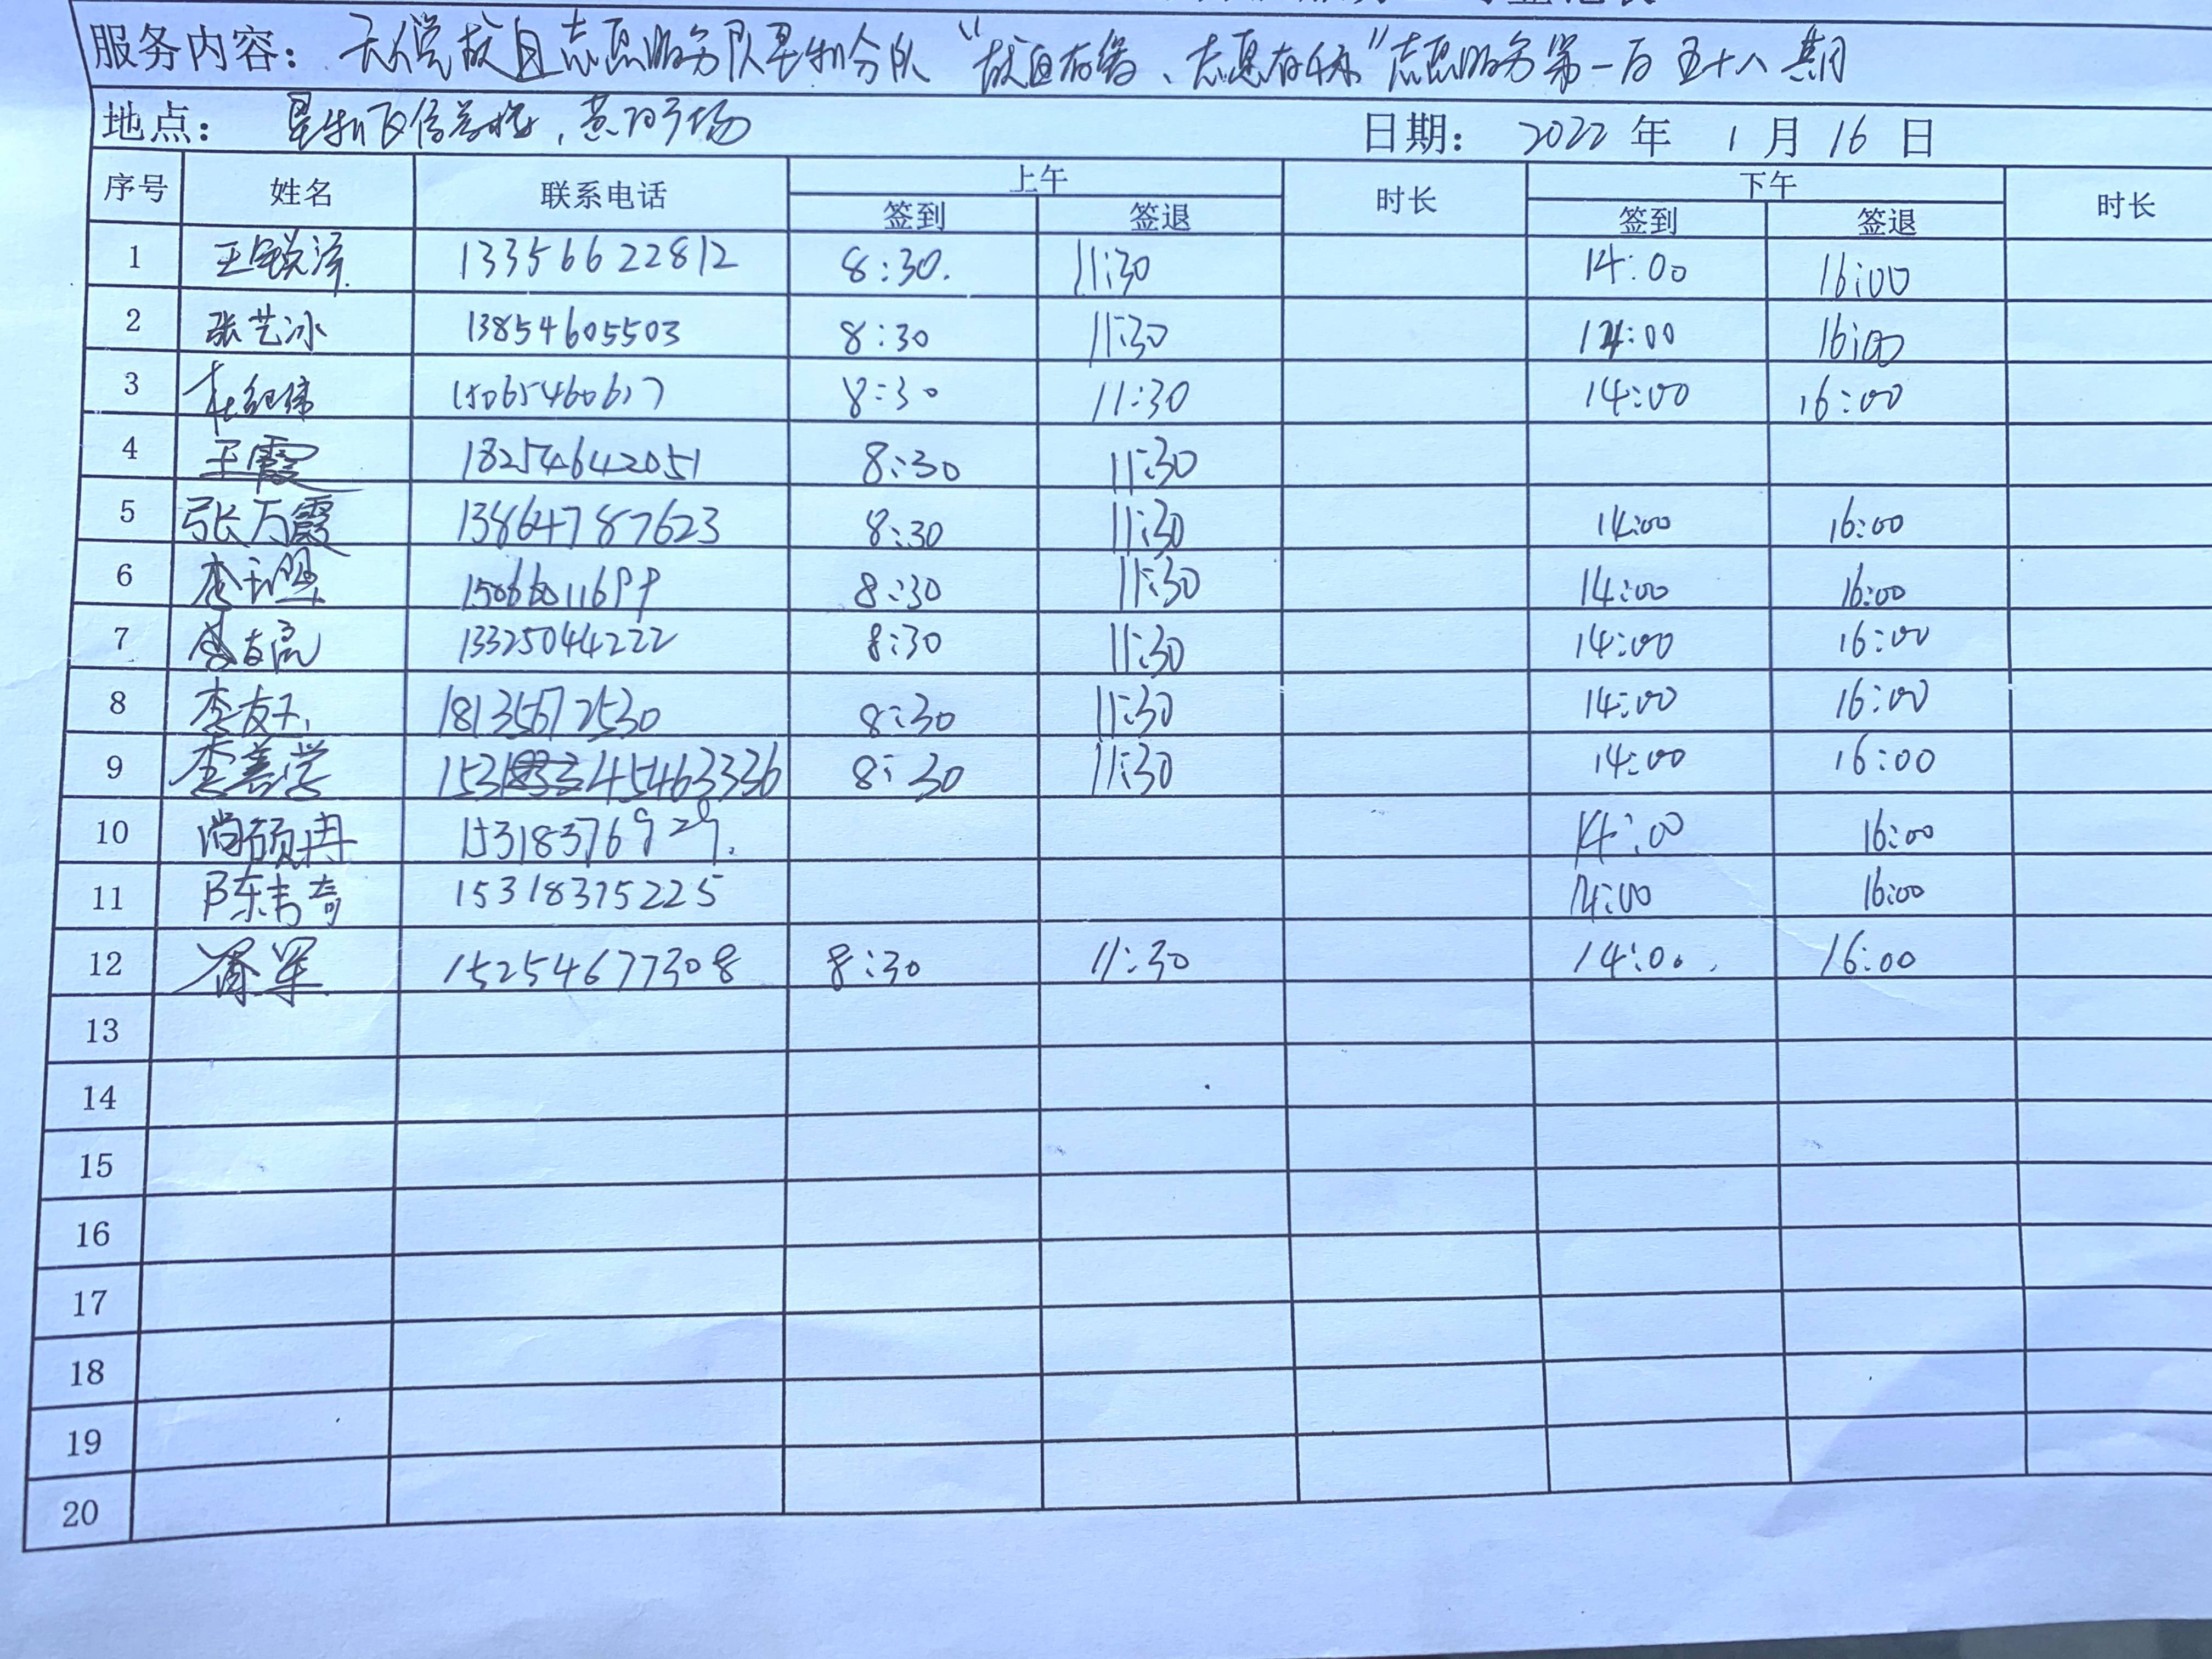 服务内容： 志愿服务队垦利分队 “ 志愿服务第一百五十八期
地点： 垦利 广场 日期： 2022 年 1 月 16 日
序号 姓名 联系电话 上午 时长 下午 时长
签到 签退 签到 签退
1 13356622812 8:30. 11:30 14:00 16:00
2 张艺冰 13854605503 8:30 11:30 14:00 16:00
3 15065460617 8:30 11:30 14:00 16:00
4 王霞 18254642051 8:30 11:30
5 张万霞 13864787623 8:30 11:30 14:00 16:00
6 8:30 11:30 14:00 16:00
7 13325044222 8:30 11:30 14:00 16:00
8 18135672530 8:30 11:30 14:00 16:00
9 李善学 8:30 11:30 14:00 16:00
10 尚硕冉 15318376929. 14:00 16:00
11 15318375225 14:00 16:00
12 15254677308 8:30 11:30 14:00. 16:00
13
14
15
16
17
18
19
20